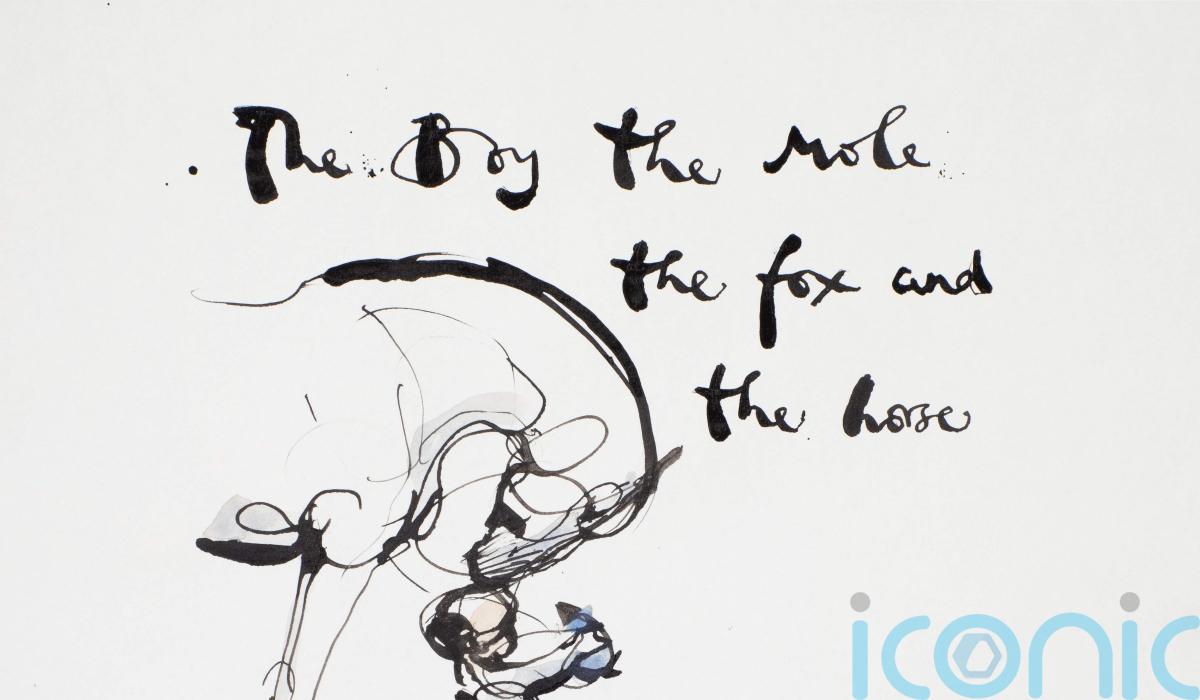 The Boy the Mole
the fox and
the horse
iconic